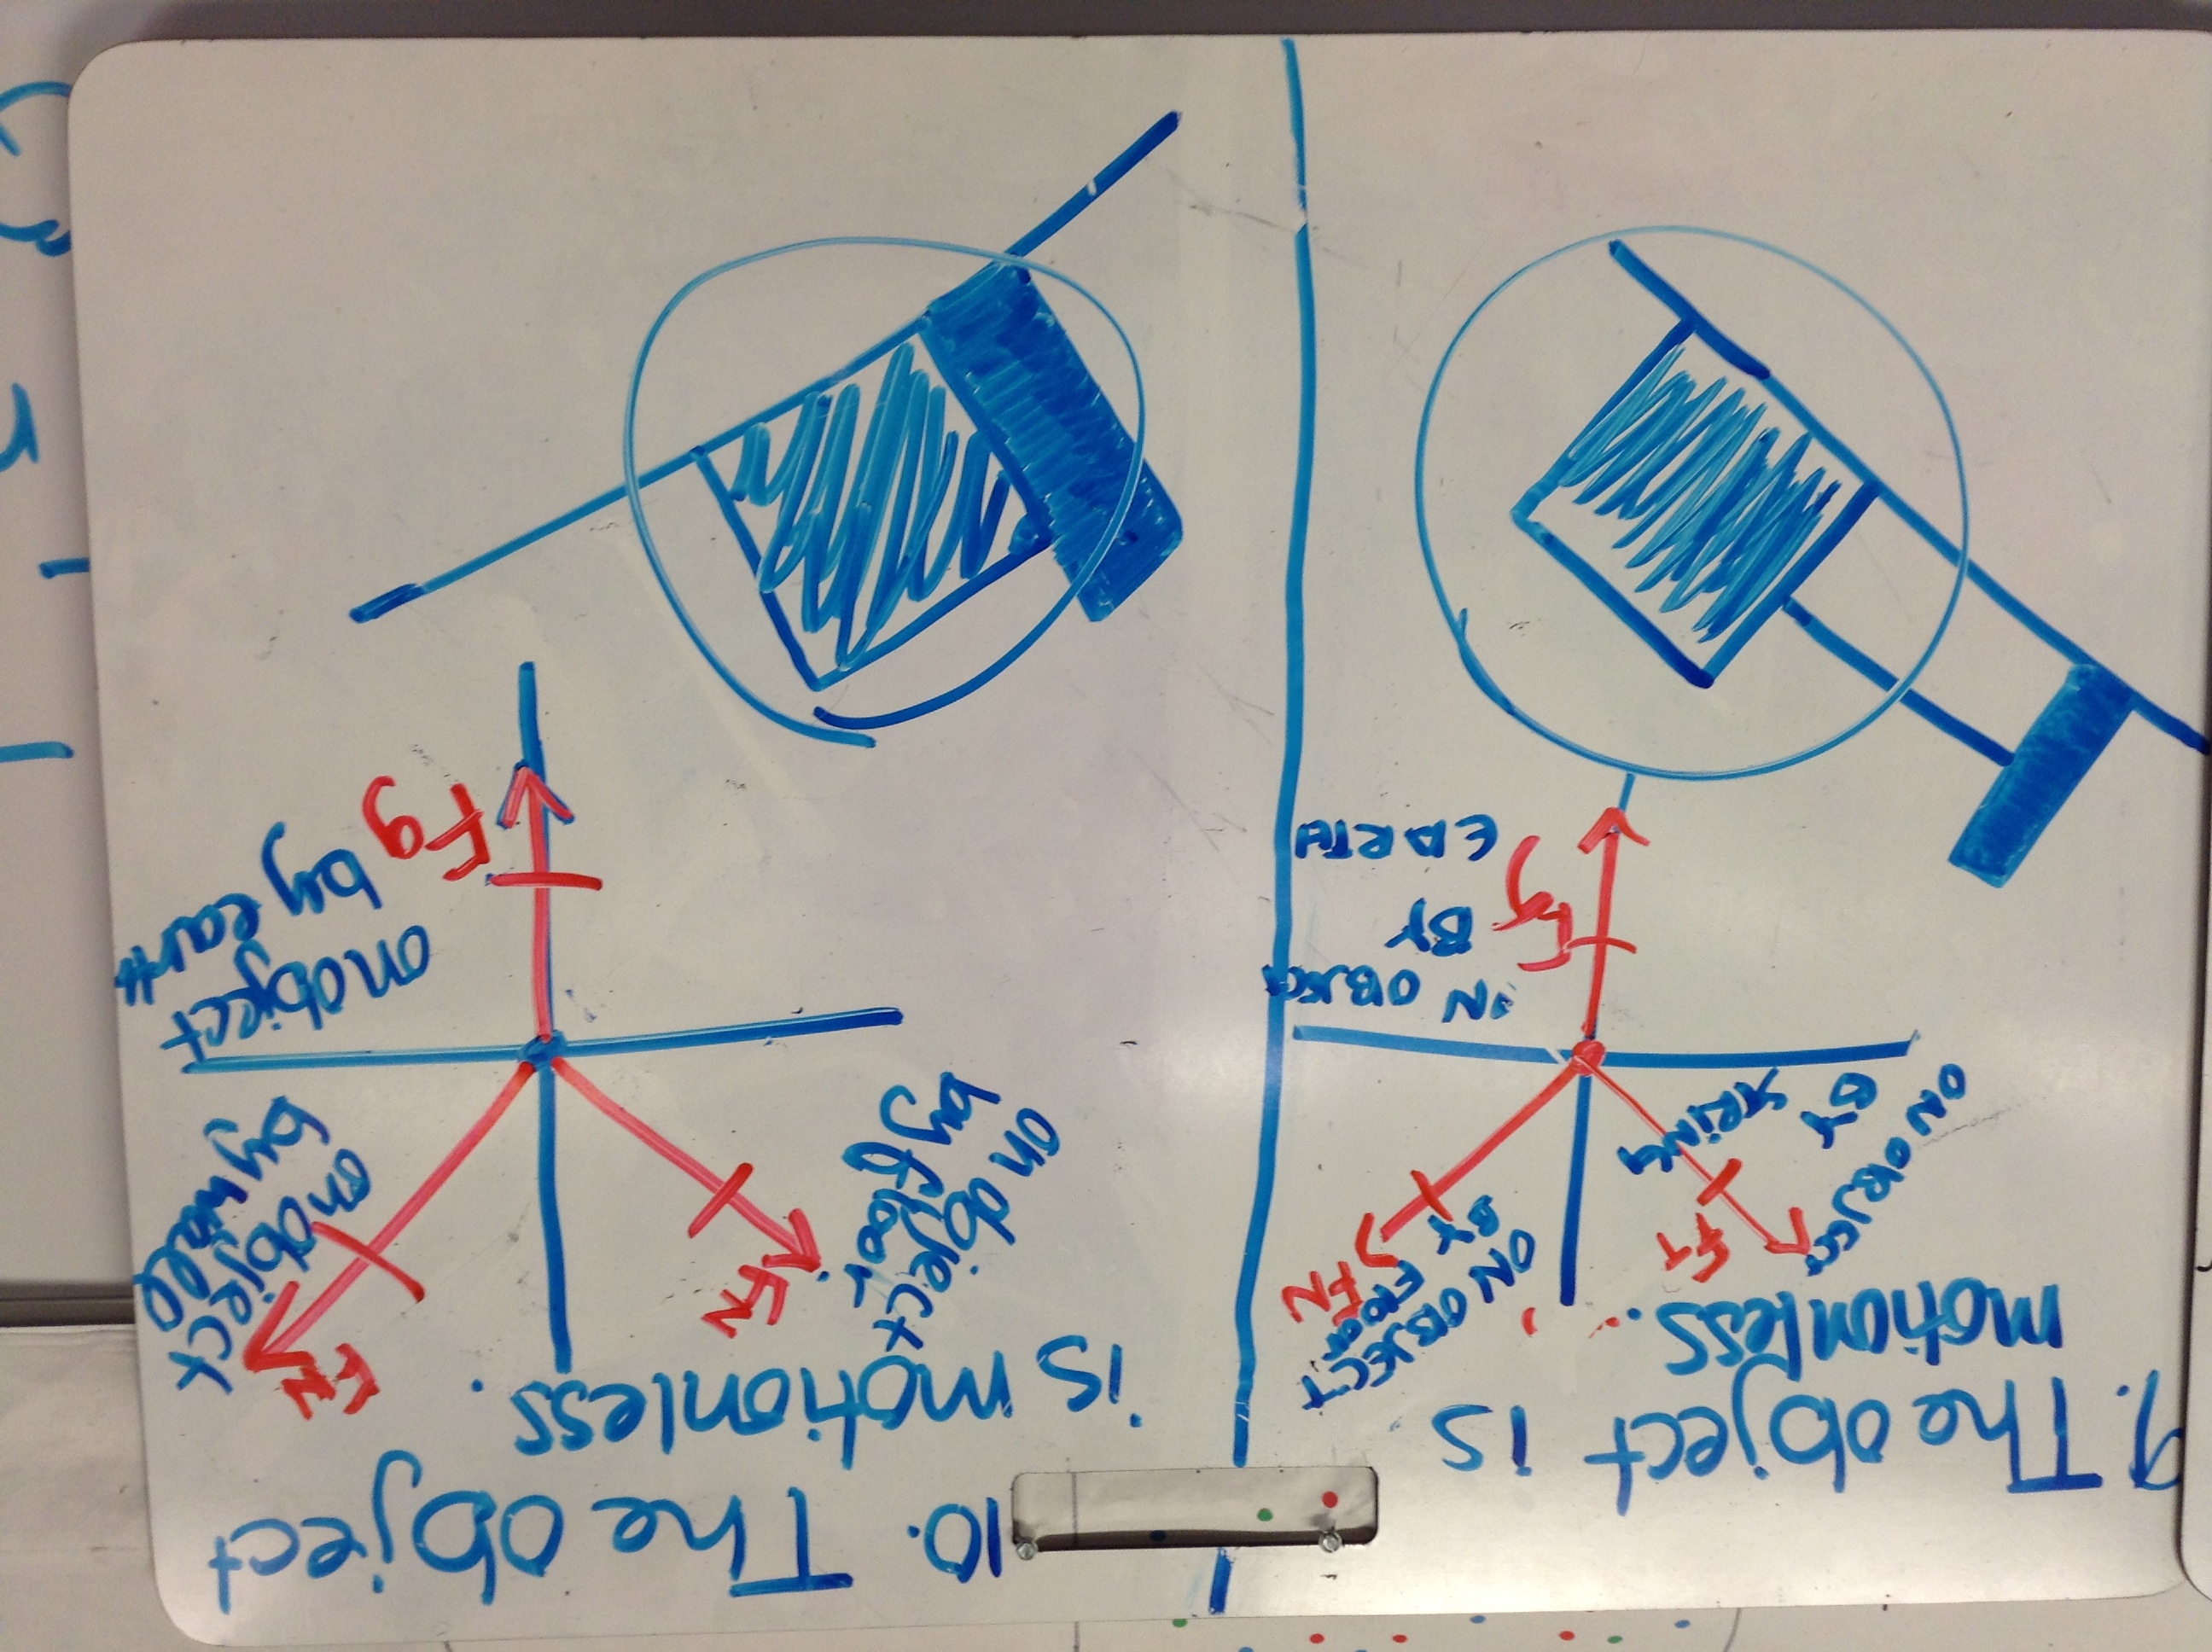 9. The object is
motionless.
FT
ON OBJECT
BY
STRING
FN
ON OBJECT
BY
FLOOR
Fg
ON OBJECT
BY
EARTH
10. The object
is motionless.
FN
on object
by floor
FN
on object
by wall
Fg
on object
by earth